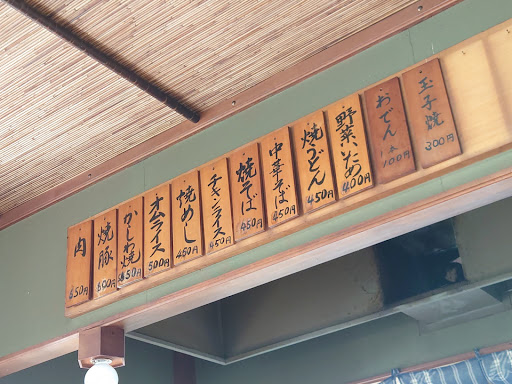 玉子焼
300円
おでん
一本
100円
野菜いため
400円
焼うどん
450円
中華そば
450円
焼そば
450円
チキンライス
450円
焼めし
450円
オムライス
500円
かしわ焼
350円
焼豚
600円
肉
650円